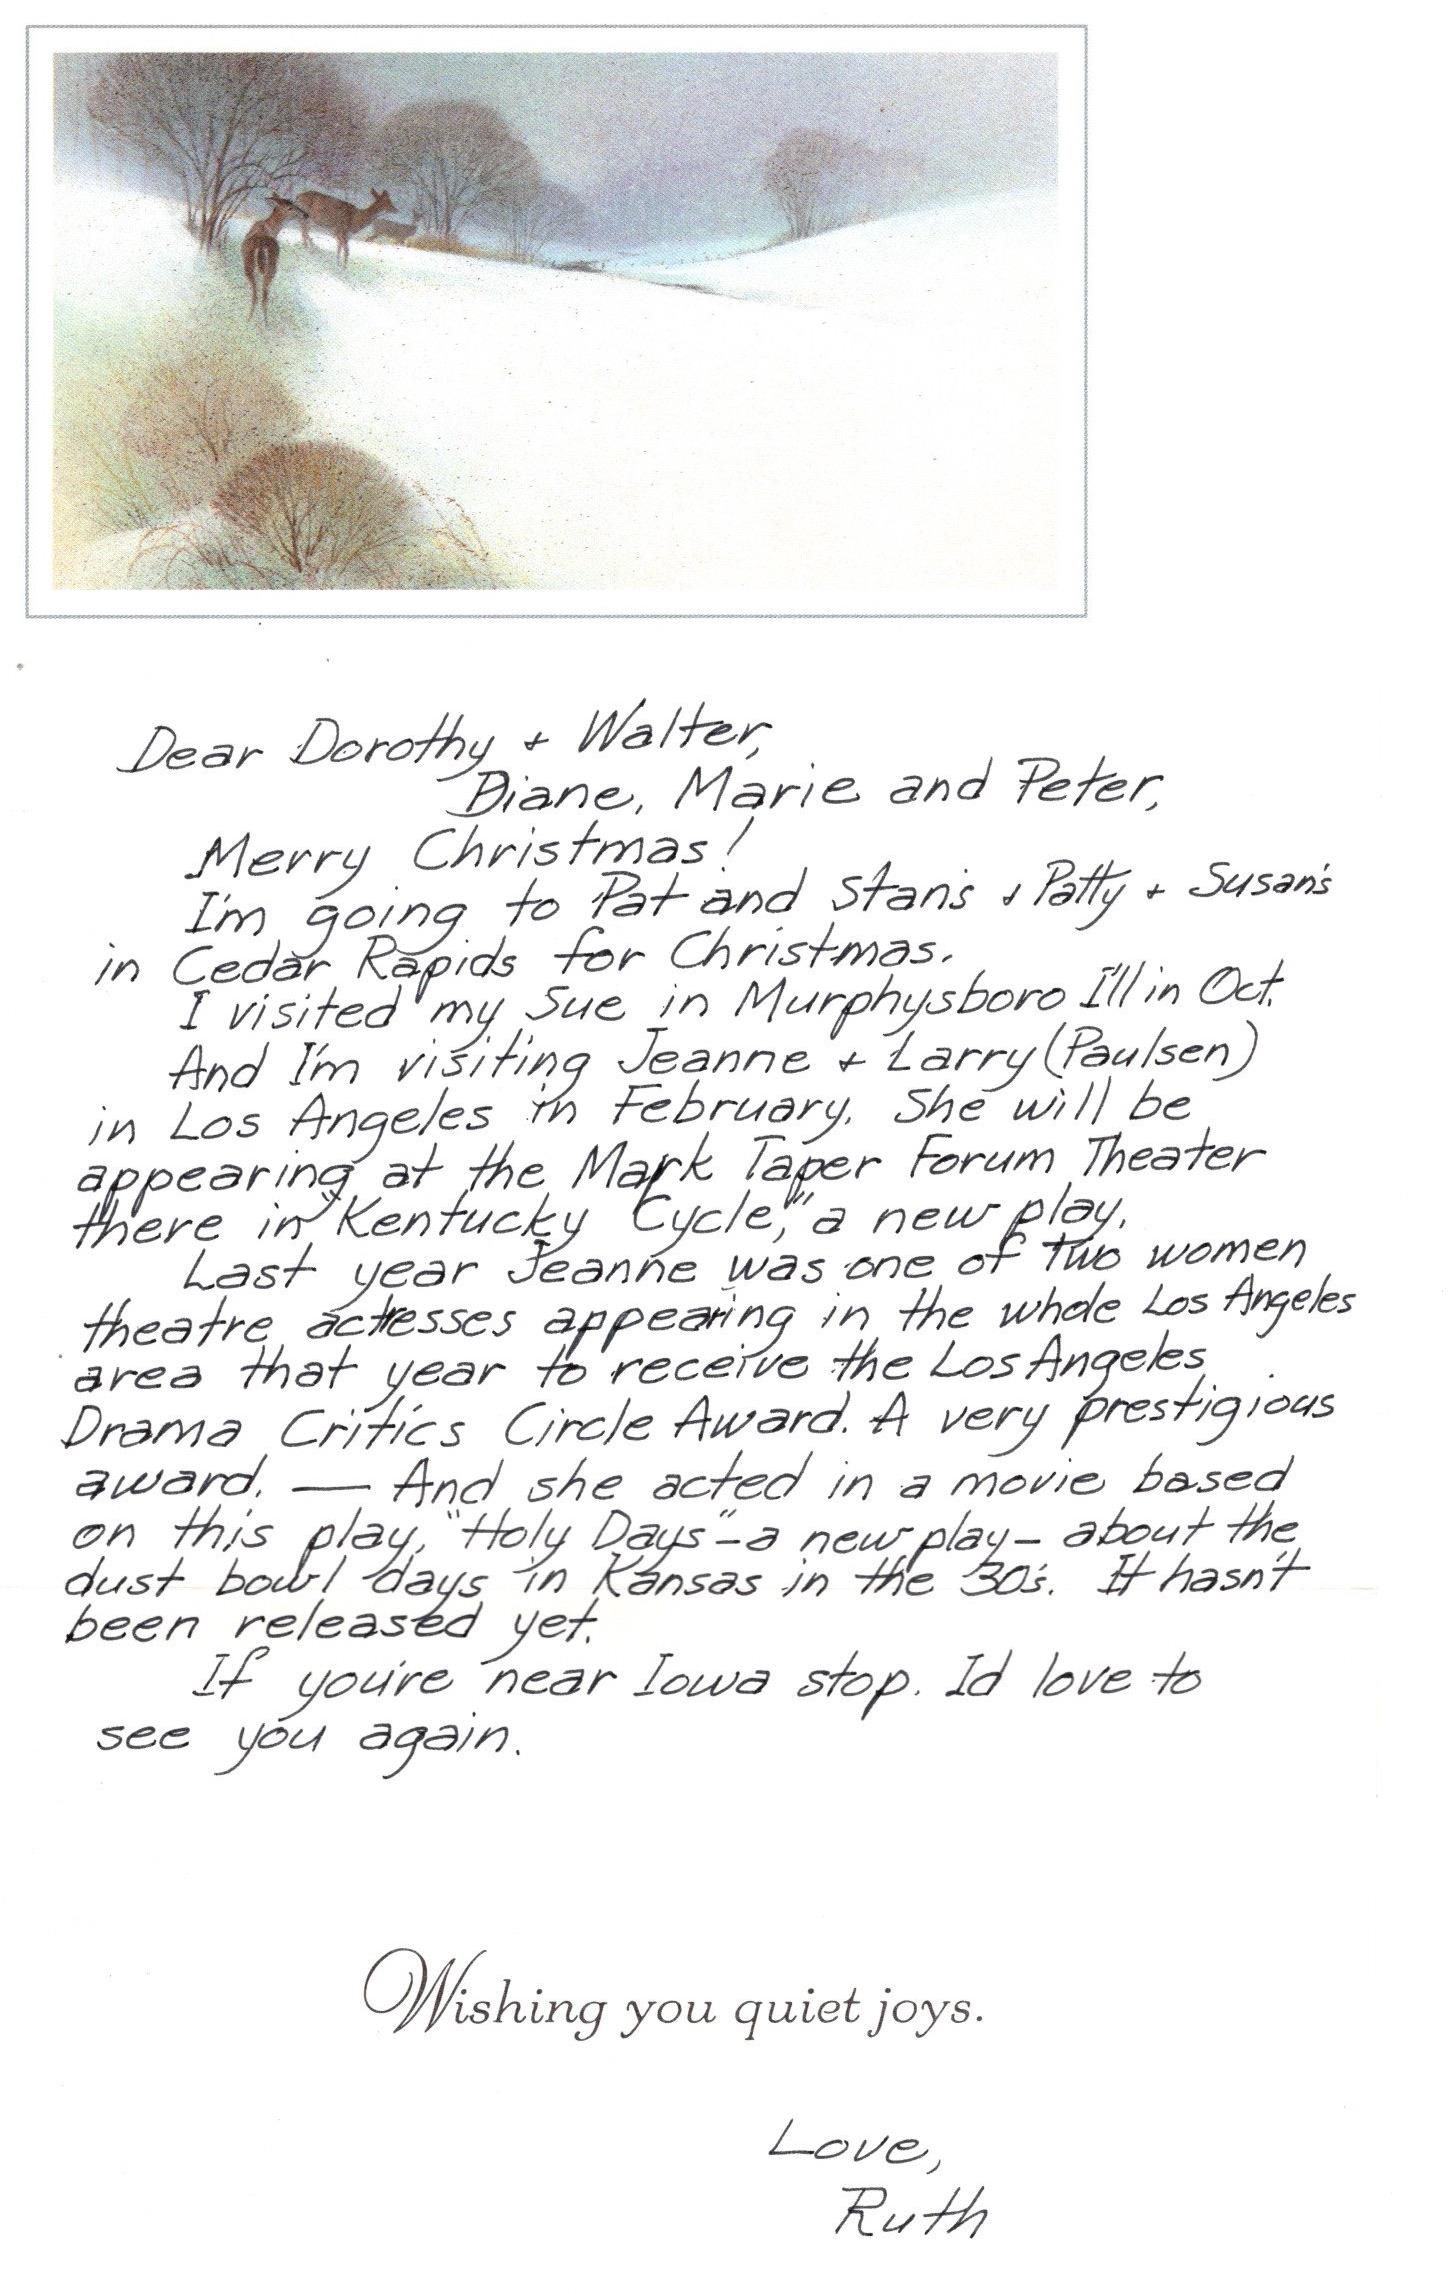 Dear Dorothy + Walter,
Diane, Marie and Peter,
Merry Christmas!
I'm going to Pat and Stan's + Patty + Susan's
in Cedar Rapids for Christmas.
I visited my Sue in Murphysboro I'll in Oct.
And I'm visiting Jeanne + Larry (Paulsen)
in Los Angeles in February. She will be
appearing at the Mark Taper Forum Theater
there in "Kentucky Cycle," a new play.
Last year Jeanne was one of two women
theatre actresses appearing in the whole Los Angeles
area that year to receive the Los Angeles
Drama Critics Circle Award. A very prestigious
award. — And she acted in a movie based
on this play, "Holy Days" – a new play – about the
dust bowl days in Kansas in the 30's. It hasn't
been released yet.
If you're near Iowa stop. I'd love to
see you again.
Wishing you quiet joys.
Love,
Ruth